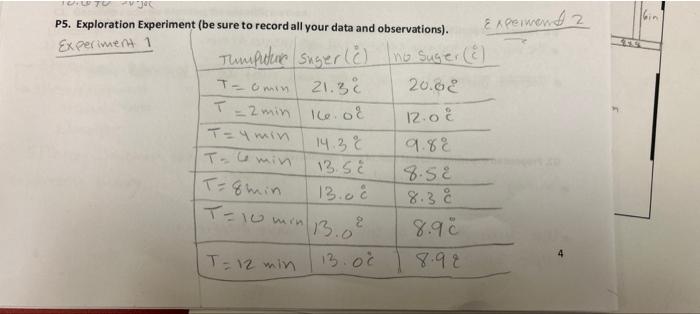 P5. Exploration Experiment (be sure to record all your data and observations).
Experiment 2
6in
Experiment 1
Tumputure suger (°C) no suger (°C)
T=0min 21.3°C 20.0°C
T=2min 16.0°C 12.0°C
T=4min 14.3°C 9.8°C
T=6min 13.5°C 8.5°C
T=8min 13.0°C 8.3°C
T=10min 13.0° 8.9°C
T=12 min 13.0°C 8.9°C
4